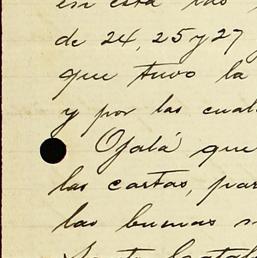 en esta las
de 24, 25 y 27
que tuvo la
y por las cual
Ojalá que
las cartas, par
las buenas